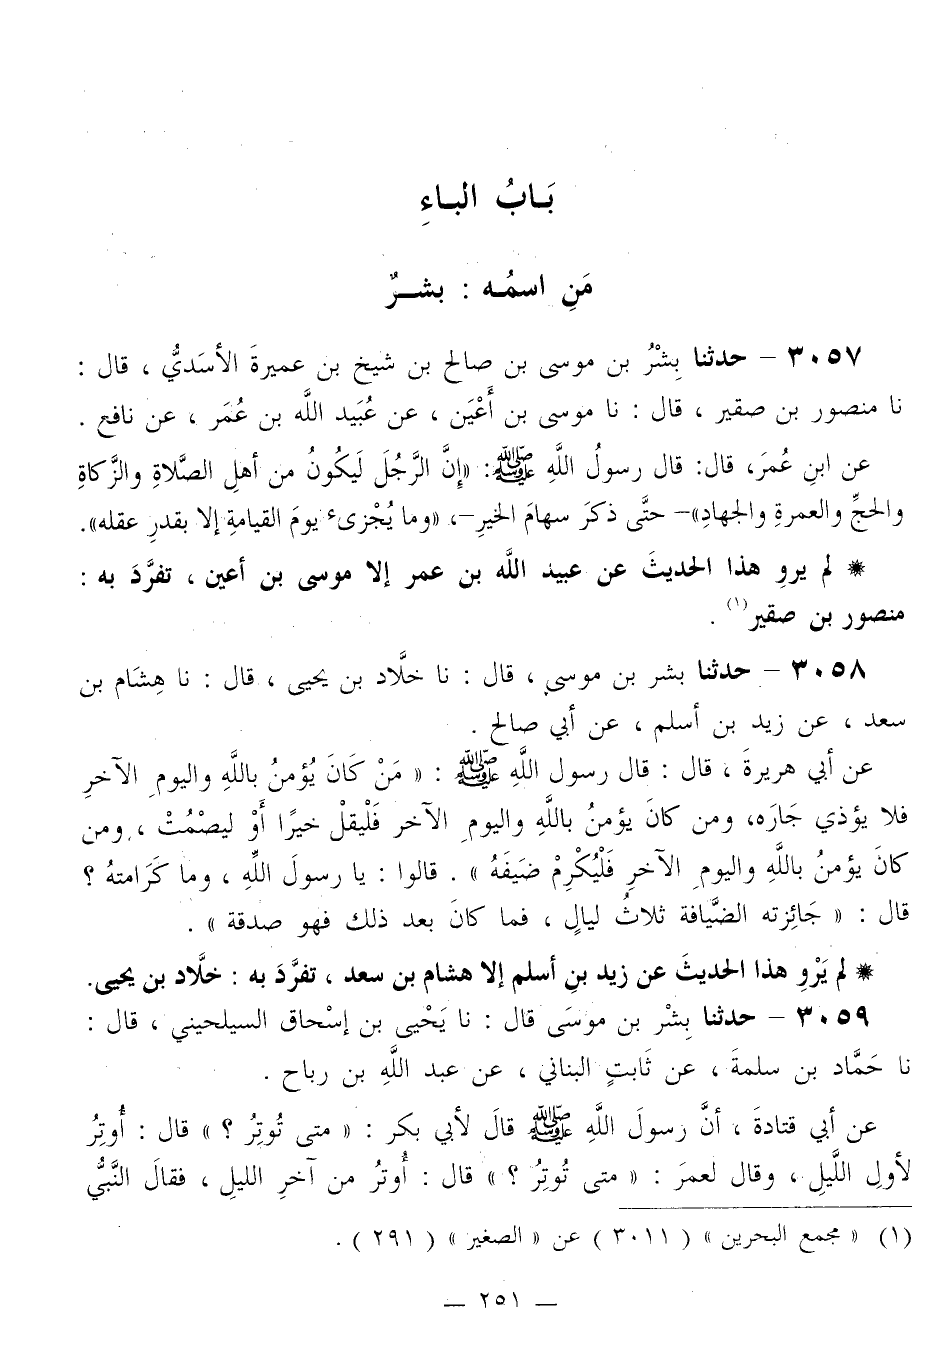 بَـابُ البـاءِ
مَنِ اسمُـه : بشــرٌ
٣٠٥٧ – حدثنا بِشْرُ بن موسى بن صالح بن شيخ بن عميرةَ الأسَديُّ ، قال :
نا منصور بن صقير ، قال : نا موسى بن أَعْيَن ، عن عُبَيد اللَّه بن عُمَر ، عن نافع .
عن ابنِ عُمرَ، قال: قال رسولُ اللَّهِ ﷺ: «إِنَّ الرَّجُلَ لَيكُونُ من أهلِ الصَّلاةِ والزَّكاةِ
والحجِّ والعمرةِ والجهادِ»– حتَّى ذكرَ سهامَ الخيرِ–، «وما يُجْزىء يومَ القيامةِ إلا بقدرِ عقله».
* لم يروِ هذا الحديثَ عن عبيد اللَّه بن عمر إلا موسى بن أعين ، تفرَّدَ به :
منصور بن صقير(١) .
٣٠٥٨ – حدثنا بشر بن موسى ، قال : نا خلَّاد بن يحيى ، قال : نا هِشَام بن
سعد ، عن زيد بن أسلم ، عن أبي صالح .
عن أبي هريرةَ ، قال : قال رسول اللَّهِ ﷺ : « مَنْ كَانَ يُؤمنُ باللَّهِ واليومِ الآخرِ
فلا يؤذي جَارَه، ومن كانَ يؤمنُ باللَّهِ واليومِ الآخر فَلْيقلْ خيرًا أَوْ ليصْمُتْ ، ومن
كانَ يؤمنُ باللَّهِ واليومِ الآخرِ فَلْيُكْرِمْ ضيَفَهُ » . قالوا : يا رسولَ اللَّهِ ، وما كَرَامتهُ ؟
قال : « جَائِزته الضيَّافة ثلاثُ ليالٍ ، فما كانَ بعد ذلك فهو صدقة » .
* لم يَرْوِ هذا الحديثَ عن زيد بنِ أسلم إلا هشام بن سعد ، تفرَّدَ به : خلَّاد بن يحيى.
٣٠٥٩ – حدثنا بِشْر بن موسَى قال : نا يَحْيى بن إسْحاق السيلحيني ، قال :
نا حَمَّاد بن سلمةَ ، عن ثَابتٍ البناني ، عن عبد اللَّهِ بن رباح .
عن أبي قتادةَ ، أنَّ رسولَ اللَّهِ ﷺ قالَ لأبي بكر : « متى تُوتِرُ ؟ » قال : أُوتِرُ
لأولِ اللَّيلِ ، وقال لعمرَ : « متى تُوتِرُ ؟ » قال : أُوترُ من آخرِ الليلِ ، فقالَ النَّبيُّ
(١) « مجمع البحرين » ( ٣٠١١ ) عن « الصغير » ( ٢٩١ ) .
— ٢٥١ —